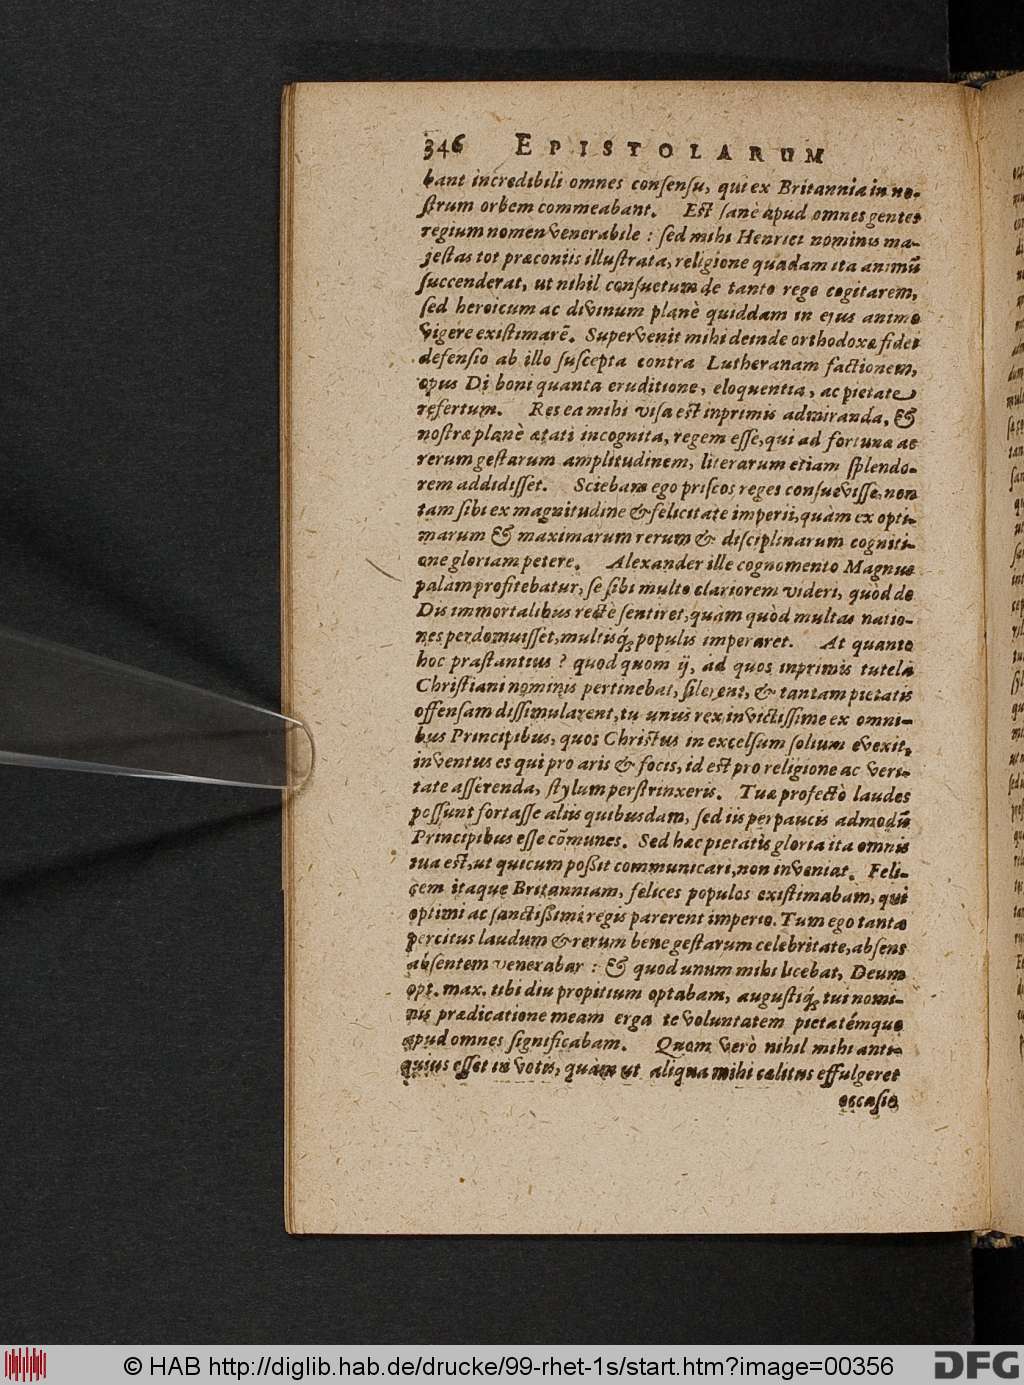 346 EPISTOLARUM
bant incredibili omnes consensu, qui ex Britannia in no-
strum orbem commeabant. Est sanè apud omnes gentes
regium nomen venerabile : sed mihi Henrici nominis ma-
jestas tot præconiis illustrata, religione quadam ita animū
succenderat, ut nihil consuetum de tanto rege cogitarem,
sed heroicum ac divinum planè quiddam in ejus animo
vigere existimarē. Supervenit mihi deinde orthodoxæ fidei
defensio ab illo suscepta contra Lutheranam factionem,
opus Di boni quanta eruditione, eloquentia, ac pietate
refertum. Res ea mihi visa est inprimis admiranda, &
nostræ planè ætati incognita, regem esse, qui ad fortunæ ac
rerum gestarum amplitudinem, literarum etiam splendo-
rem addidisset. Sciebam ego priscos reges consuevisse, non
tam sibi ex magnitudine & felicitate imperii, quàm ex opti-
marum & maximarum rerum & disciplinarum cogniti-
one gloriam petere. Alexander ille cognomento Magnus
palàm profitebatur, se sibi multo clariorem videri, quòd de
Dis immortalibus rectè sentiret, quàm quòd multas natio-
nes perdomuisset, multisq́; populis imperaret. At quanto
hoc præstantius? quod quom ij, ad quos inprimis tutela
Christiani nominis pertinebat, silerent, & tantam pietatis
offensam dissimularent, tu unus rex invictissime ex omni-
bus Principibus, quos Christus in excelsum solium evexit,
inventus es qui pro aris & focis, id est pro religione ac veri-
tate asserenda, stylum perstrinxeris. Tuæ profectò laudes
possunt fortasse aliis quibusdam, sed iis perpaucis admodū
Principibus esse cōmunes. Sed hæc pietatis gloria ita omnis
tua est, ut quicum poßit communicari, non inveniat. Feli-
cem itaque Britanniam, felices populos existimabam, qui
optimi ac sanctißimi regis parerent imperio. Tum ego tanta
percitus laudum & rerum bene gestarum celebritate, absens
absentem venerabar : & quod unum mihi licebat, Deum
opt. max. tibi diu propitium optabam, augustiq́; tui nomi-
nis prædicatione meam erga te voluntatem pietatémque
apud omnes significabam. Quom verò nihil mihi anti-
quius esset in votis, quàm ut aliqua mihi cælitus effulgeret
occasio
© HAB http://diglib.hab.de/drucke/99-rhet-1s/start.htm?image=00356
DFG